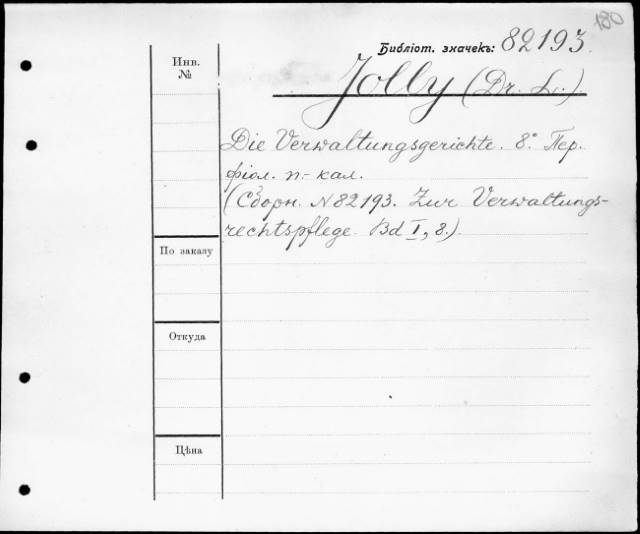 180
Библiот. значекъ: 82193.
Инв.
№
Jolly (Dr. L.).
Die Verwaltungsgerichte. 8.° Пер.
фiол. п.- кал.
(Сборн. N 82193. Zur Verwaltungs-
rechtspflege. Bd I, 8.)
По заказу
Откуда
Цѣна